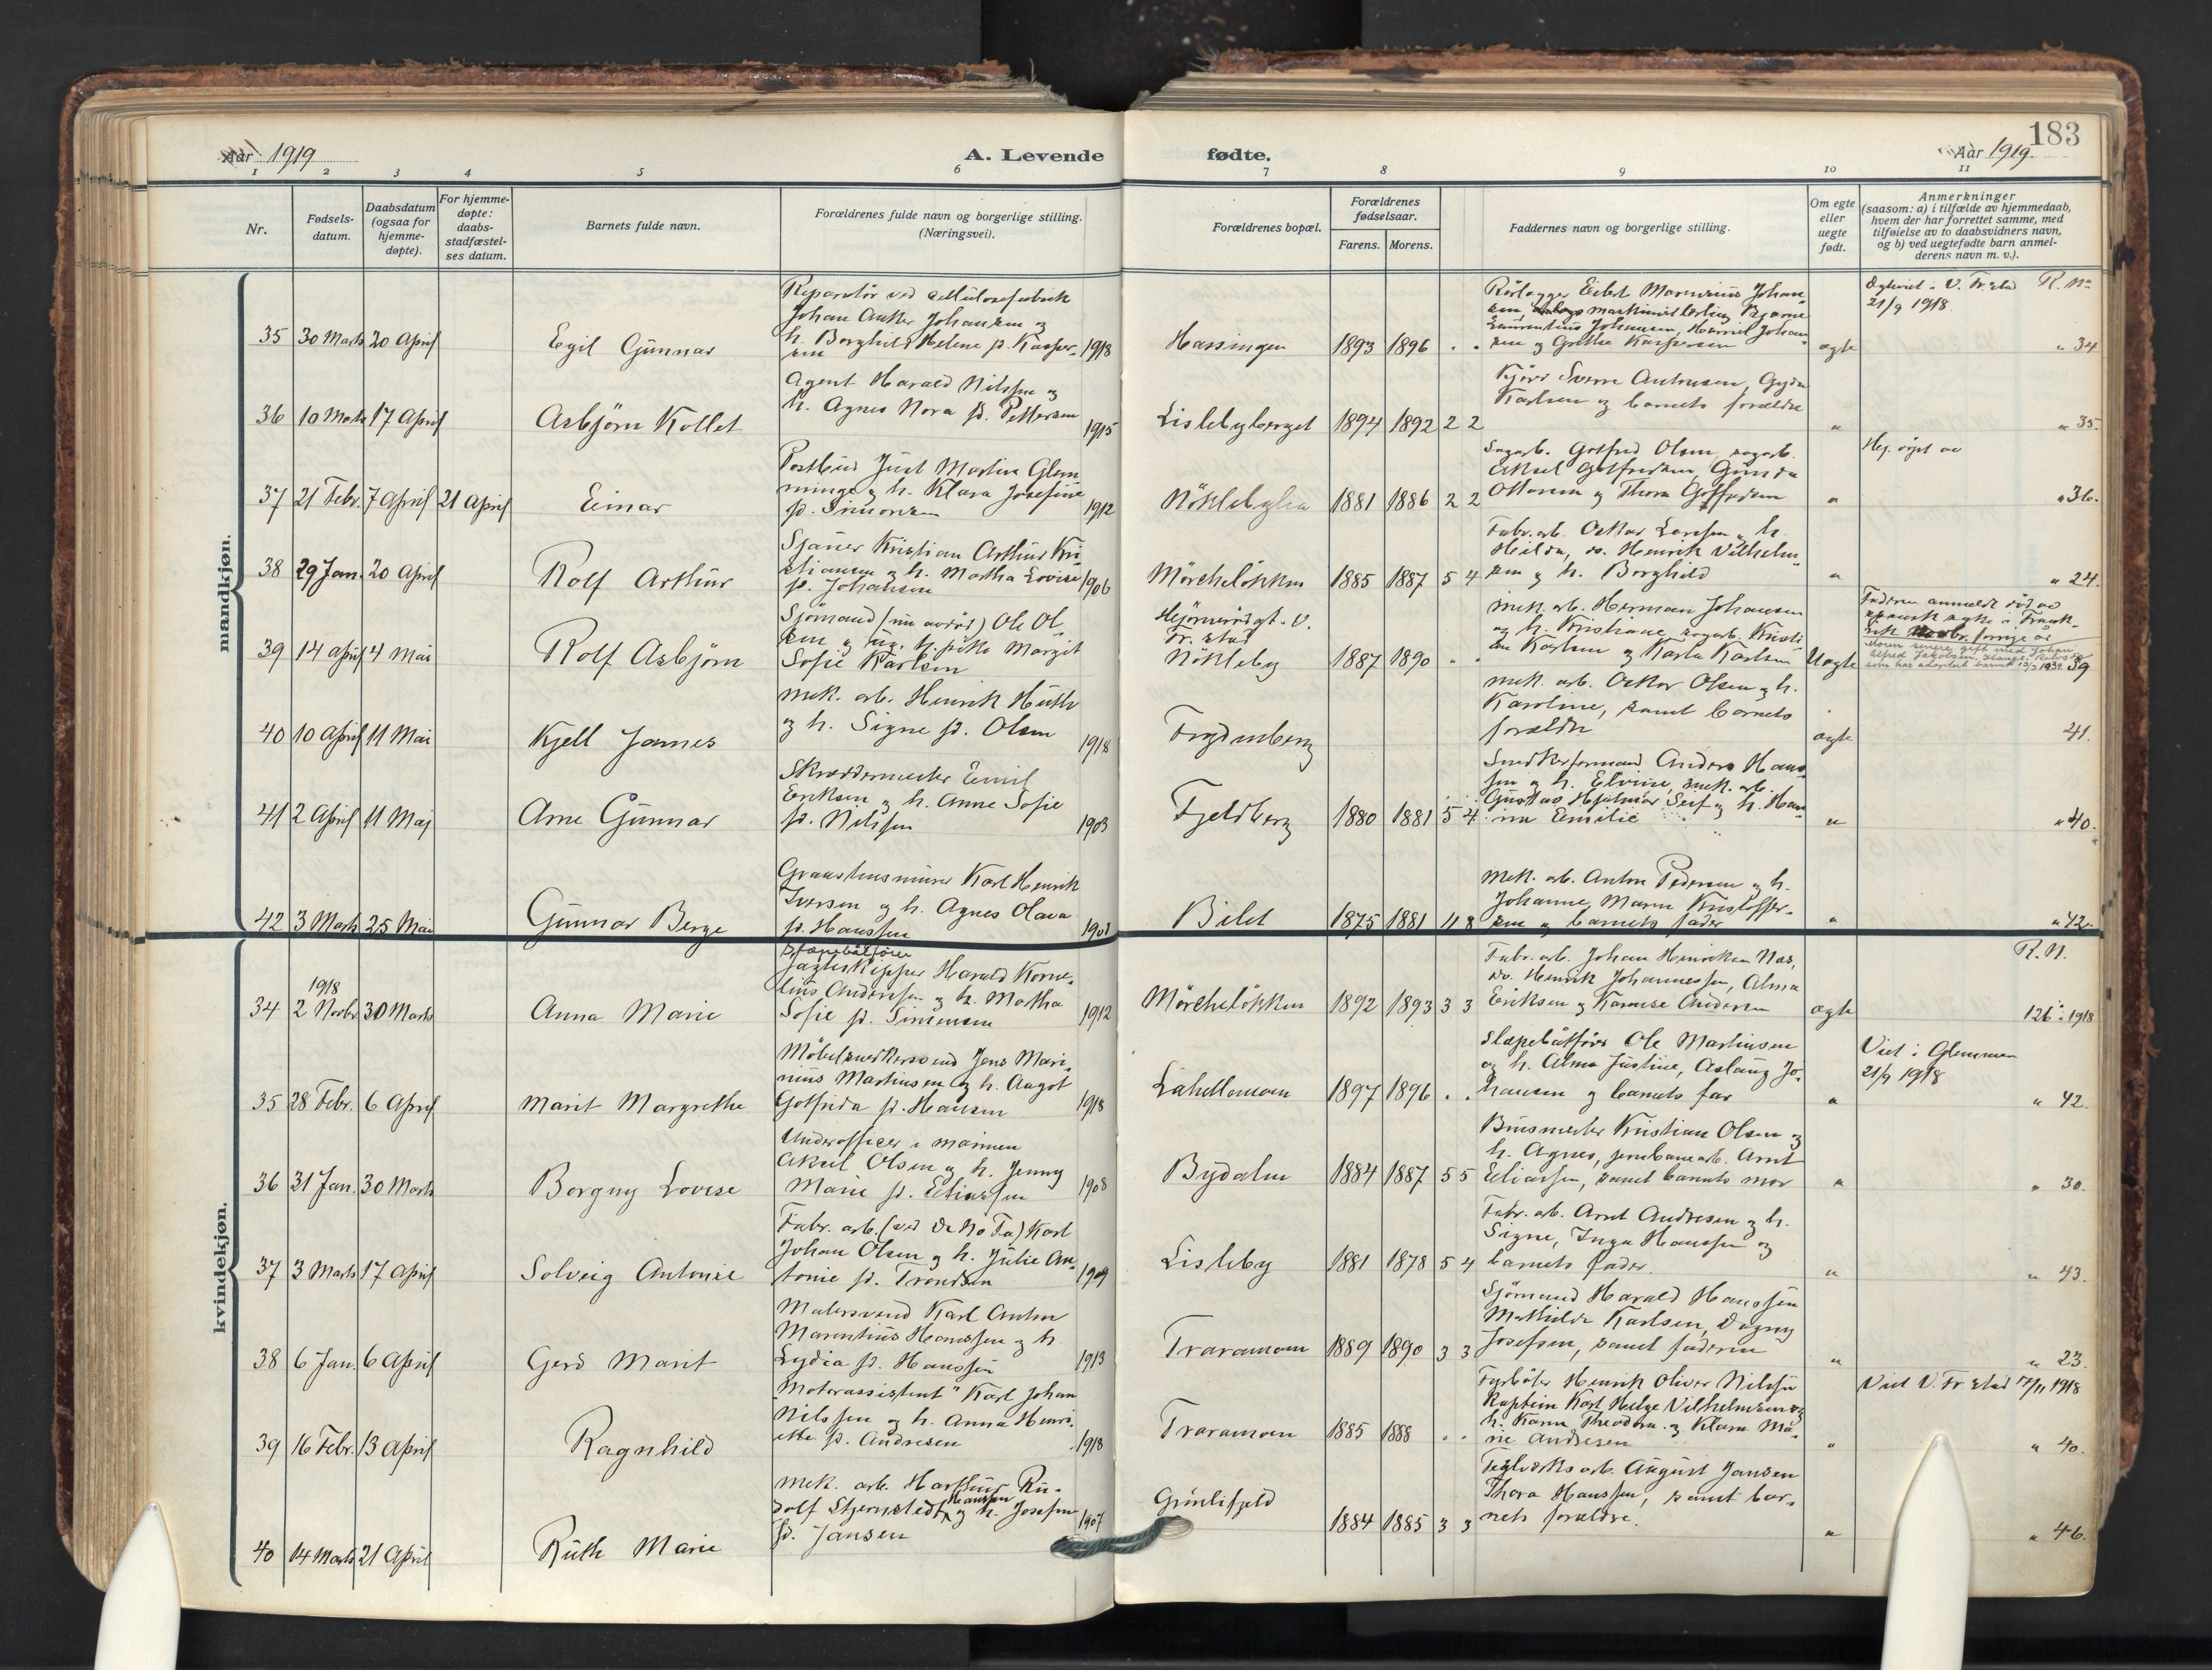 183
Aar 1919
A. Levende
fødte.
Aar 1919
1 2 3 4 5 6 7 8 9 10 11
Nr.
Fødsels-
datum.
Daabsdatum
(ogsaa for
hjemme-
døpte).
For hjemme-
døpte:
daabs-
stadfæstel-
ses datum.
Barnets fulde navn.
Forældrenes fulde navn og borgerlige stilling.
(Næringsvei).
Forældrenes bopæl.
Forældrenes
fødselsaar.
Farens. Morens.
Faddernes navn og borgerlige stilling.
Om egte
eller
uegte
født.
Anmerkninger
(saasom: a) i tilfælde av hjemmedaab,
hvem der har forrettet samme, med
tilføielse av to daabsvidners navn,
og b) ved uegtefødte barn anmel-
derens navn m. v.).
mandkjøn.
35 30 Marts 20 April
Egil Gunnar
Reparatör ved cellulosefabrik
Johan Anker Johansen og
h. Borghild Helene f. Kasper-
sen 1918
Hassingen 1893 1896 . .
Rörlegger Edvet Marensius Johan-
sen, maskinist Erling Bjarne
Laurentius Johansen, Harriet Johan-
sen og Grethe Kaspersen
ægte
Egteviet i V. Fr.stad R. No
21/9 1918
" 34
36 10 Marts 17 April
Asbjörn Kollet
Agent Harald Nilssen og
h. Agnes Nora f. Pettersen
1915
Lislebyberget 1894 1892 2 2
Sverre Antonsen, Gyda
Karlsen og barnets forældre
"
" 35.
37 21 Febr. 7 April 21 April
Einar
Postbud Just Martin Glem-
minge og h. Klara Josefine
f. Simonsen 1912
Nökleby 1881 1886 2 2
Sagarb. Gotfred Olsen, sagarb.
Aksel Gotfredsen, Gunda
Ottosen og Thora Gotfredsen
"
Hj. döpt av
" 36.
38 29 Jan. 20 April
Rolf Arthur
Sjauer Kristian Arthur Kri-
stiansen og h. Martha Lovise
f. Johansen 1906
Mörcheløkken 1885 1887 5 4
Fabr. arb. Oskar Larssen og h.
Hilda, do. Henrik Vilhelm-
sen og h. Borghild
"
" 24.
39 14 April 4 Mai
Rolf Asbjörn
Sjömand (nu avdöd) Ole Ol-
sen og ug. Margit
Sofie Karlsen
V.
Fr.stad
Nökleby 1887 1890 " .
mek. arb. Herman Johansen
og h. Kristiane, sagarb. Kristi-
an Karlsen og Karla Karlsen
Uægte
Faderen anmeldt död av
spansk syke i Frank-
rik Novbr. forrige år
Moren senere gift med Johan
Alfred Jakobsen,
som har adoptert barnet 13/3 1939. 39
40 10 April 11 Mai
Kjell James
mek. arb. Henrik Huth
og h. Signe f. Olsen
1918
Frydenberg
mek. arb. Oskar Olsen og h.
Karoline, samt barnets
forældre
ægte
41.
41 2 April 11 Maj
Arne Gunnar
Skreddermester Emil
Eriksen og h. Anne Sofie
f. Nilssen 1903
Fjeldberg 1880 1881 5 4
Snedkerformand Anders Hans-
sen og h. Elvine, mek. arb.
Gustav Hjalmar Seif og h. Han-
na Emilie
"
" 40.
42 3 Marts 25 Mai
Gunnar Berge
Graastensmurer Karl Henrik
Iversen og h. Agnes Olava
f. Hanssen 1901
Bilet 1875 1881 11 8
Mek. arb. Anton Pedersen og h.
Johanne, Maren Kristoffer-
sen og barnets fader
"
" 42.
kvindekjøn.
34 1918
2 Novbr 30 Marts
Anna Marie
Slæpebåtförer
Jagtskipper Harald Korne-
lius Andersen og h. Martha
Sofie f. Simensen 1912
Mörcheløkken 1892 1893 3 3
Fabr. arb. Johan Henriksen Næs,
do. Henrik Johannessen, Alma
Eriksen og Andersen
ægte
R. N.
126 i 1918
35 28 Febr. 6 April
Marit Margrethe
Möbelsnedkersvend Jens Mari-
nius Martinsen og h. Augot
Gotfrida f. Hansen 1918
Lahellemoen 1897 1896 . .
Slæpebåtförer Ole Martinsen
og h. Alma Justine, Aslaug Jo-
hansen og barnets far
"
Viet i Glemmen
21/9 1918
" 42.
36 31 Jan. 30 Marts
Borgny Lovise
Underofficer i marinen
Aksel Olsen og h. Jenny
Marie f. Eliassen 1908
Bydalen 1884 1887 5 5
Busmester Kristian Olsen og
h. Agnes, jernbanearb. Arnt
Eliassen, samt barnets mor
"
" 30.
37 3 Marts 17 April
Solveig Antonie
Fabr. arb. (ved De No Fa) Karl
Johan Olsen og h. Julie An-
tonie f. Trondsen 1909
Lisleby 1881 1878 5 4
Fabr. arb. Arnt Andresen og h.
Signe, Inga Hanssen og
barnets fader.
"
" 43.
38 6 Jan. 6 April
Gerd Marit
Malersvend Karl Anton
Marentius Hanssen og h
Lydia f. Hanssen 1913
Traramoen 1889 1890 3 3
Sjömand Harald Hanssen
Mathilde Karlsen, Dagny
Josefsen, samt faderen
"
" 23.
39 16 Febr. 13 April
Ragnhild
"Motorassistent" Karl Johan
Nilssen og h. Anna Henri-
ette f. Andresen 1918
Traramoen 1885 1888 . .
Fyrböter Henrik Oliver Nilssen
Kaptein Karl Helge Vilhelmsen og
h. Karen Theodora og Klara Ma-
rie Andresen
"
Viet V. Fr.stad 17/11 1918
" 40.
40 14 Marts 21 April
Ruth Marie
Mek. arb. Harthur Ru-
dolf Stjernstedt Hanssen og h. Josefine
f. Jansen 1907
Grönlifjeld
1884 1885 3 3
Teglverks arb. August Jansen
Thora Hanssen, samt bar-
nets forældre.
"
" 46.